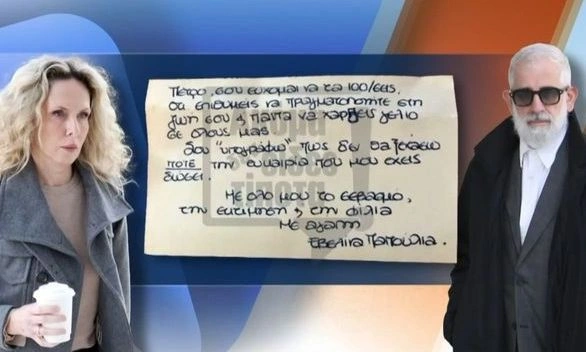 Πέτρο, σου εύχομαι να τα 100/σεις,
ότι επιθυμείς να πραγματοποιείτε στη
ζωή σου & πάντα να χαρίζεις γέλιο
σε όλους μας
Σου "υπογράφω" πως δεν θα ξεχάσω
ΠΟΤΕ την ευκαιρία που μου έχεις
δώσει.
Με όλο μου το σεβασμό,
την εκτίμηση & την φιλία
Με αγάπη
Εβελίνα Παπούλια.